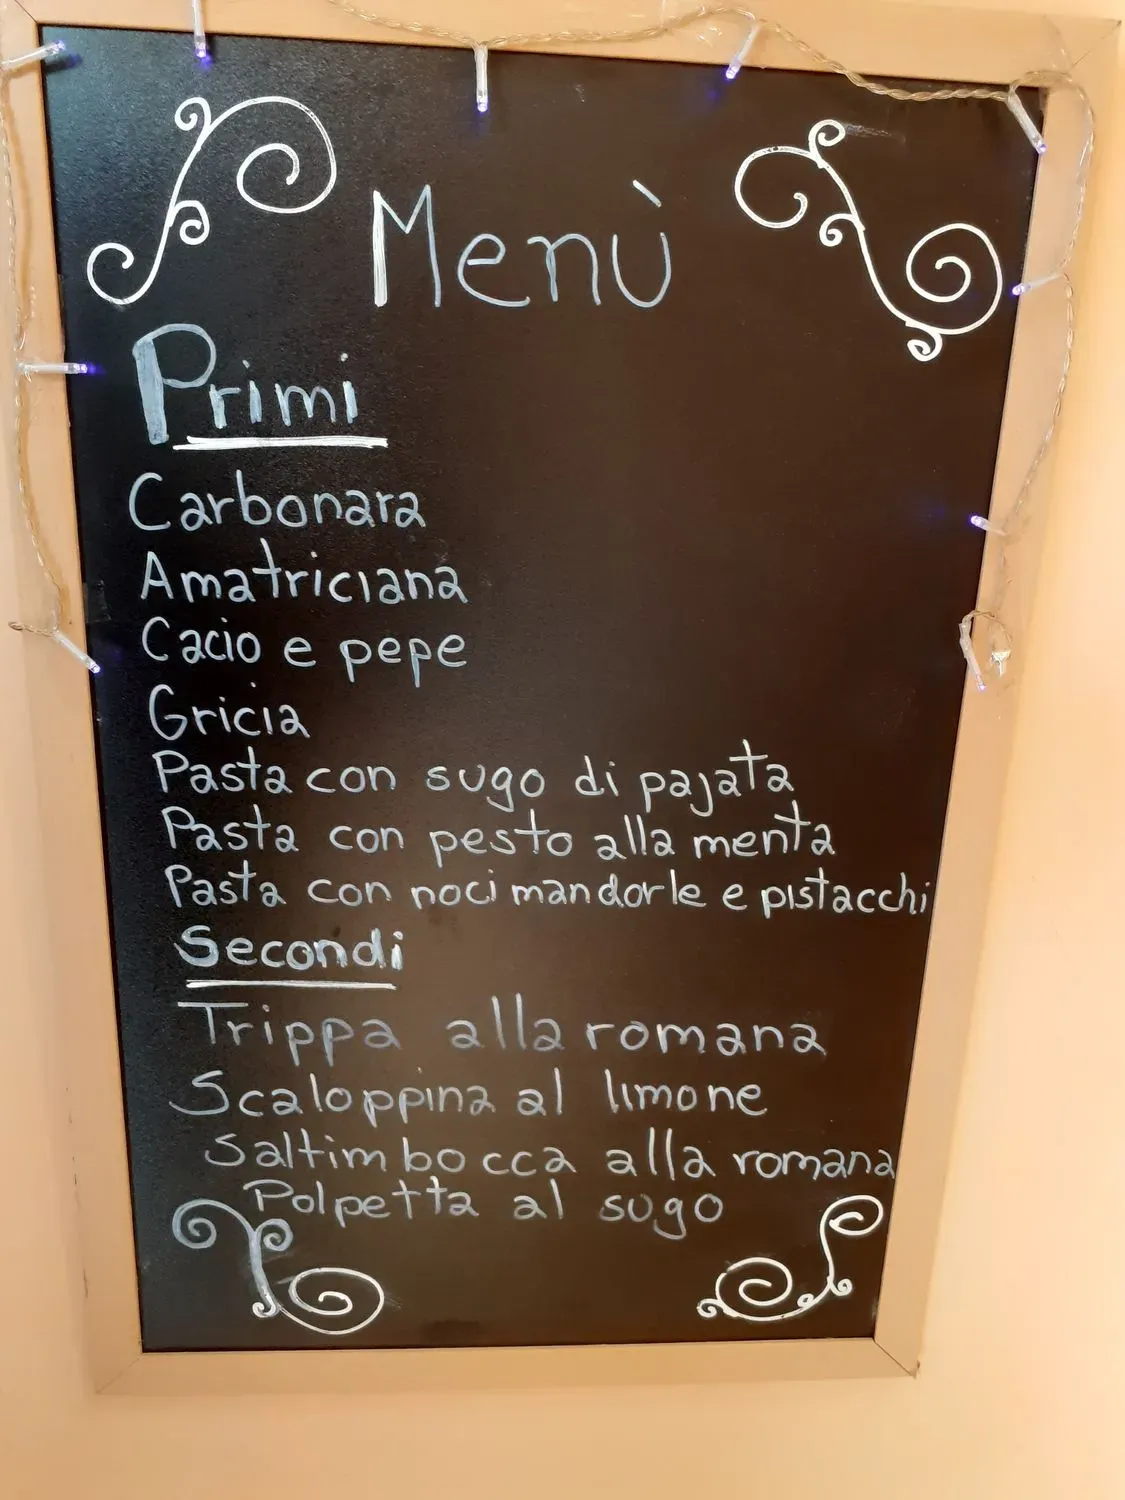 Menù
Primi
Carbonara
Amatriciana
Cacio e pepe
Gricia
Pasta con sugo di pajata
Pasta con pesto alla menta
Pasta con noci mandorle e pistacchi
Secondi
Trippa alla romana
Scaloppina al limone
Saltimbocca alla romana
Polpetta al sugo